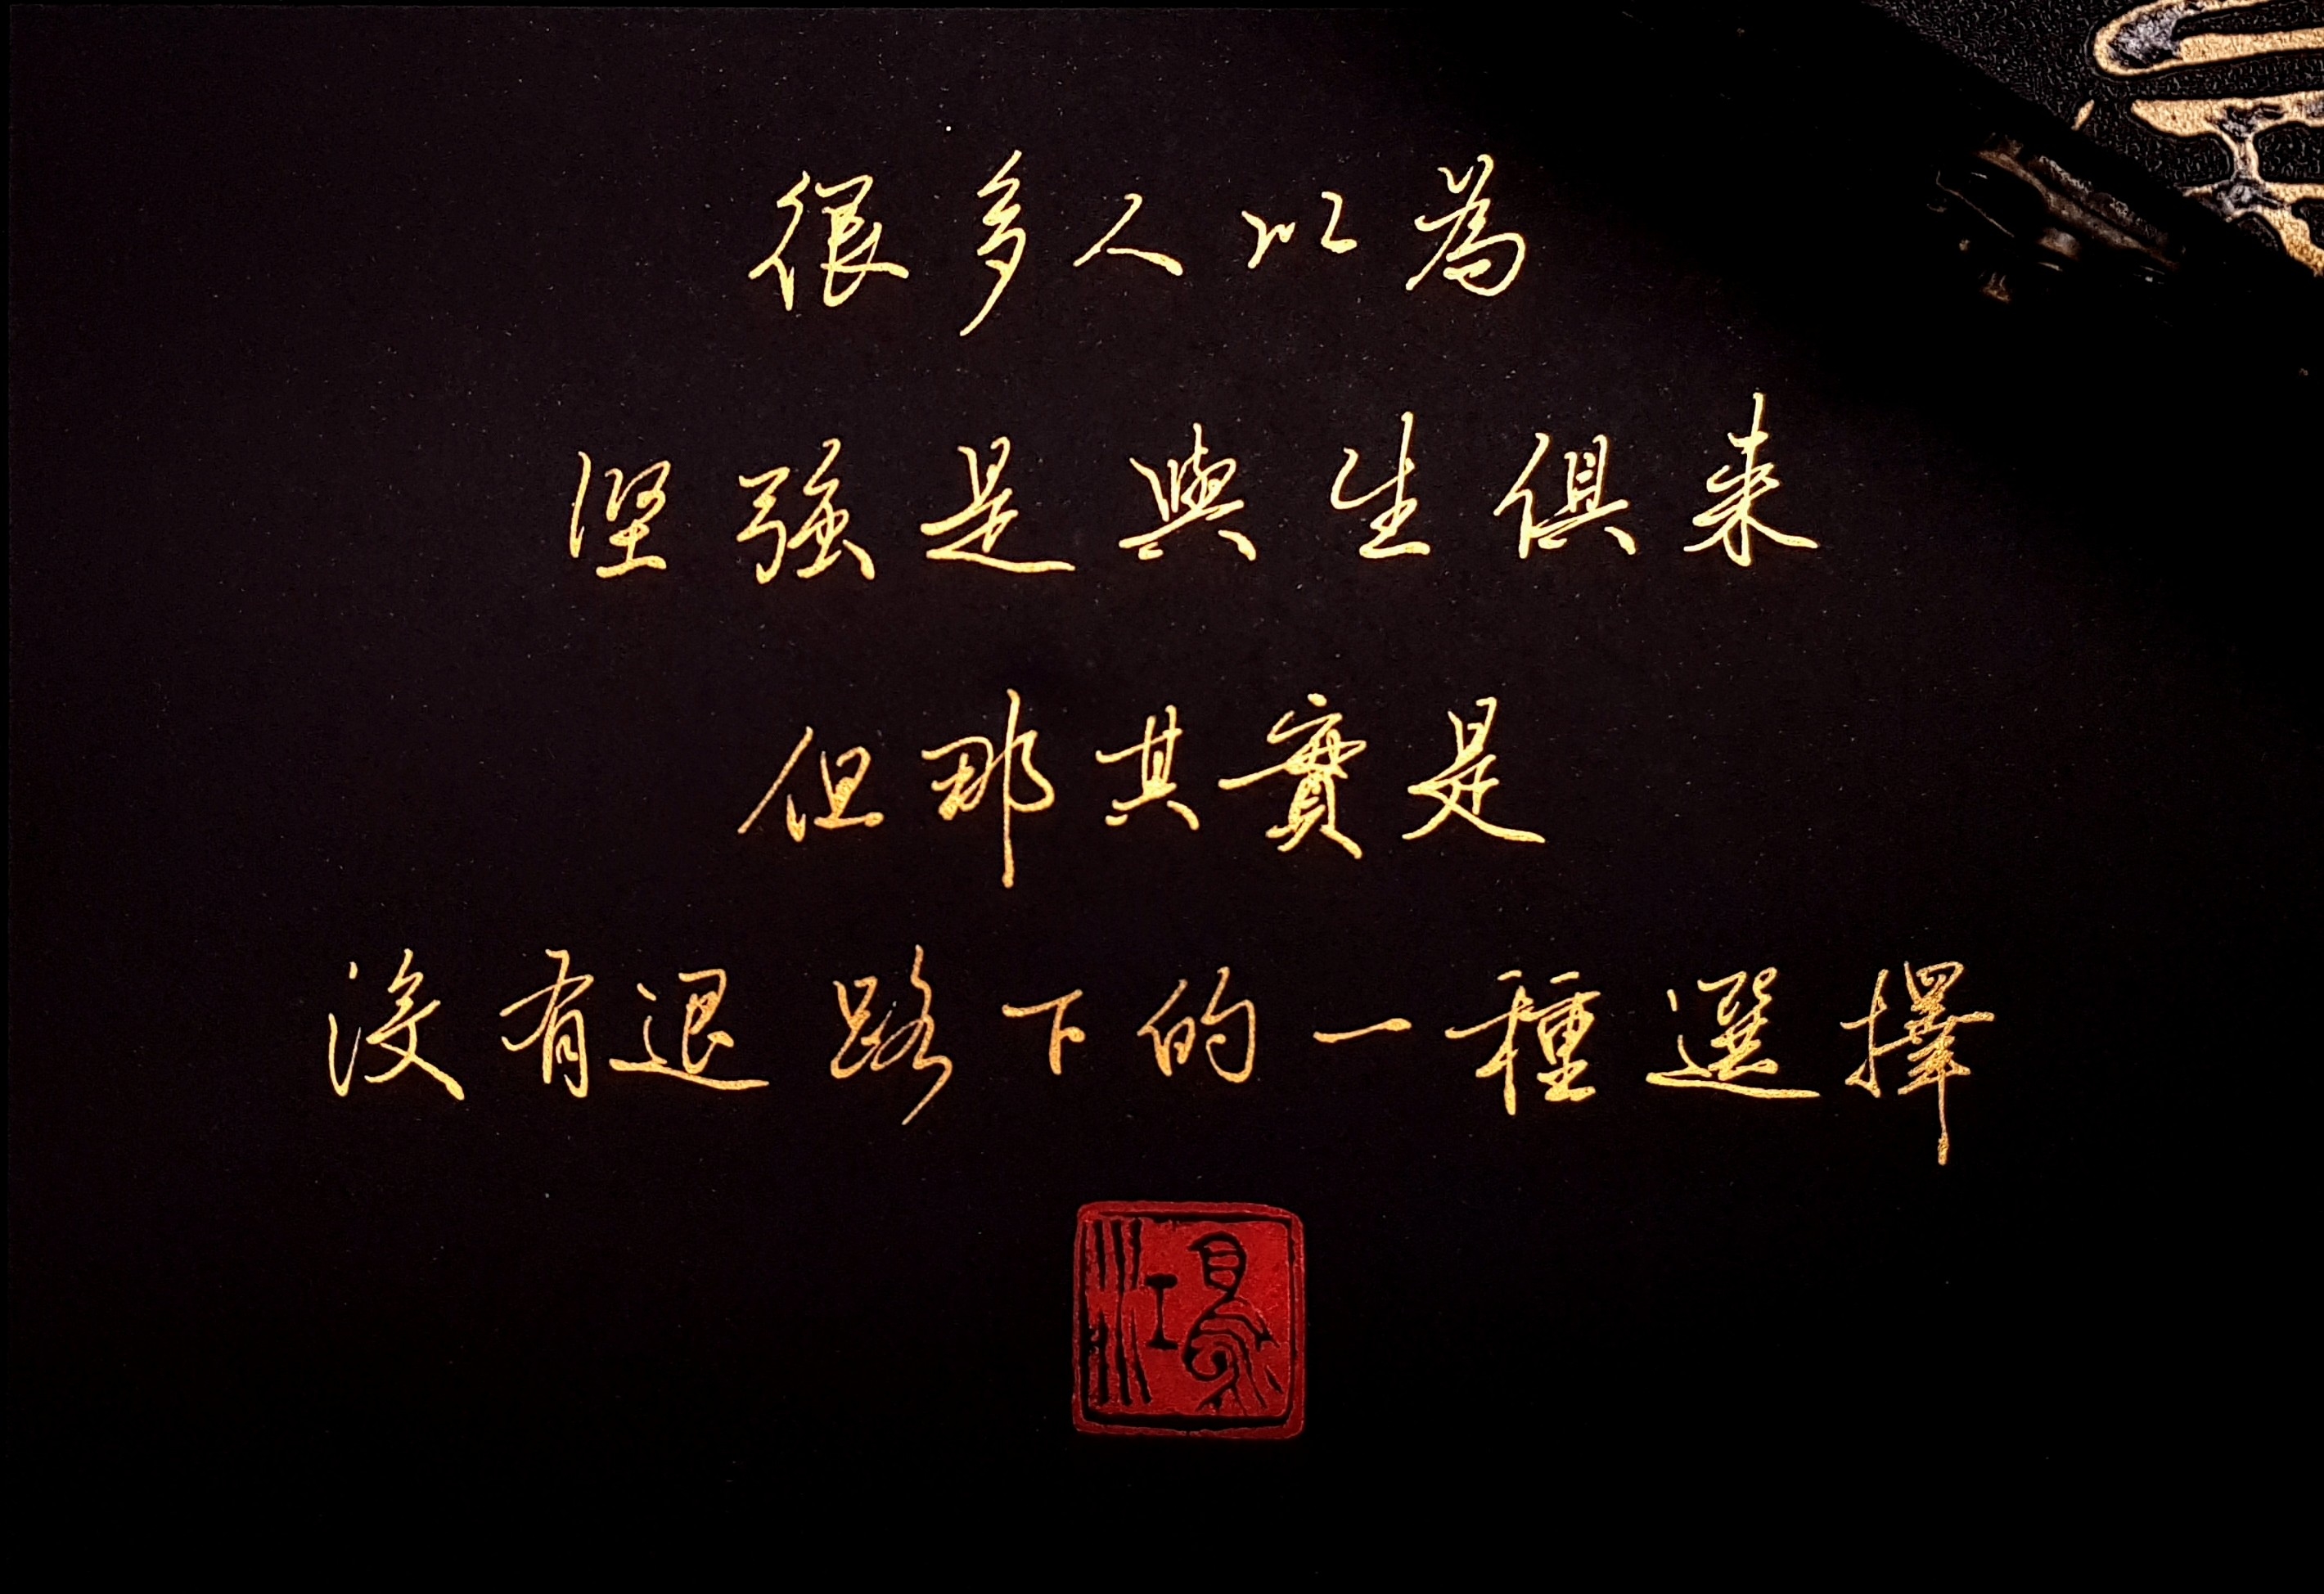 很多人以為
坚強是與生俱来
但那其實是
沒有退路下的一種選擇